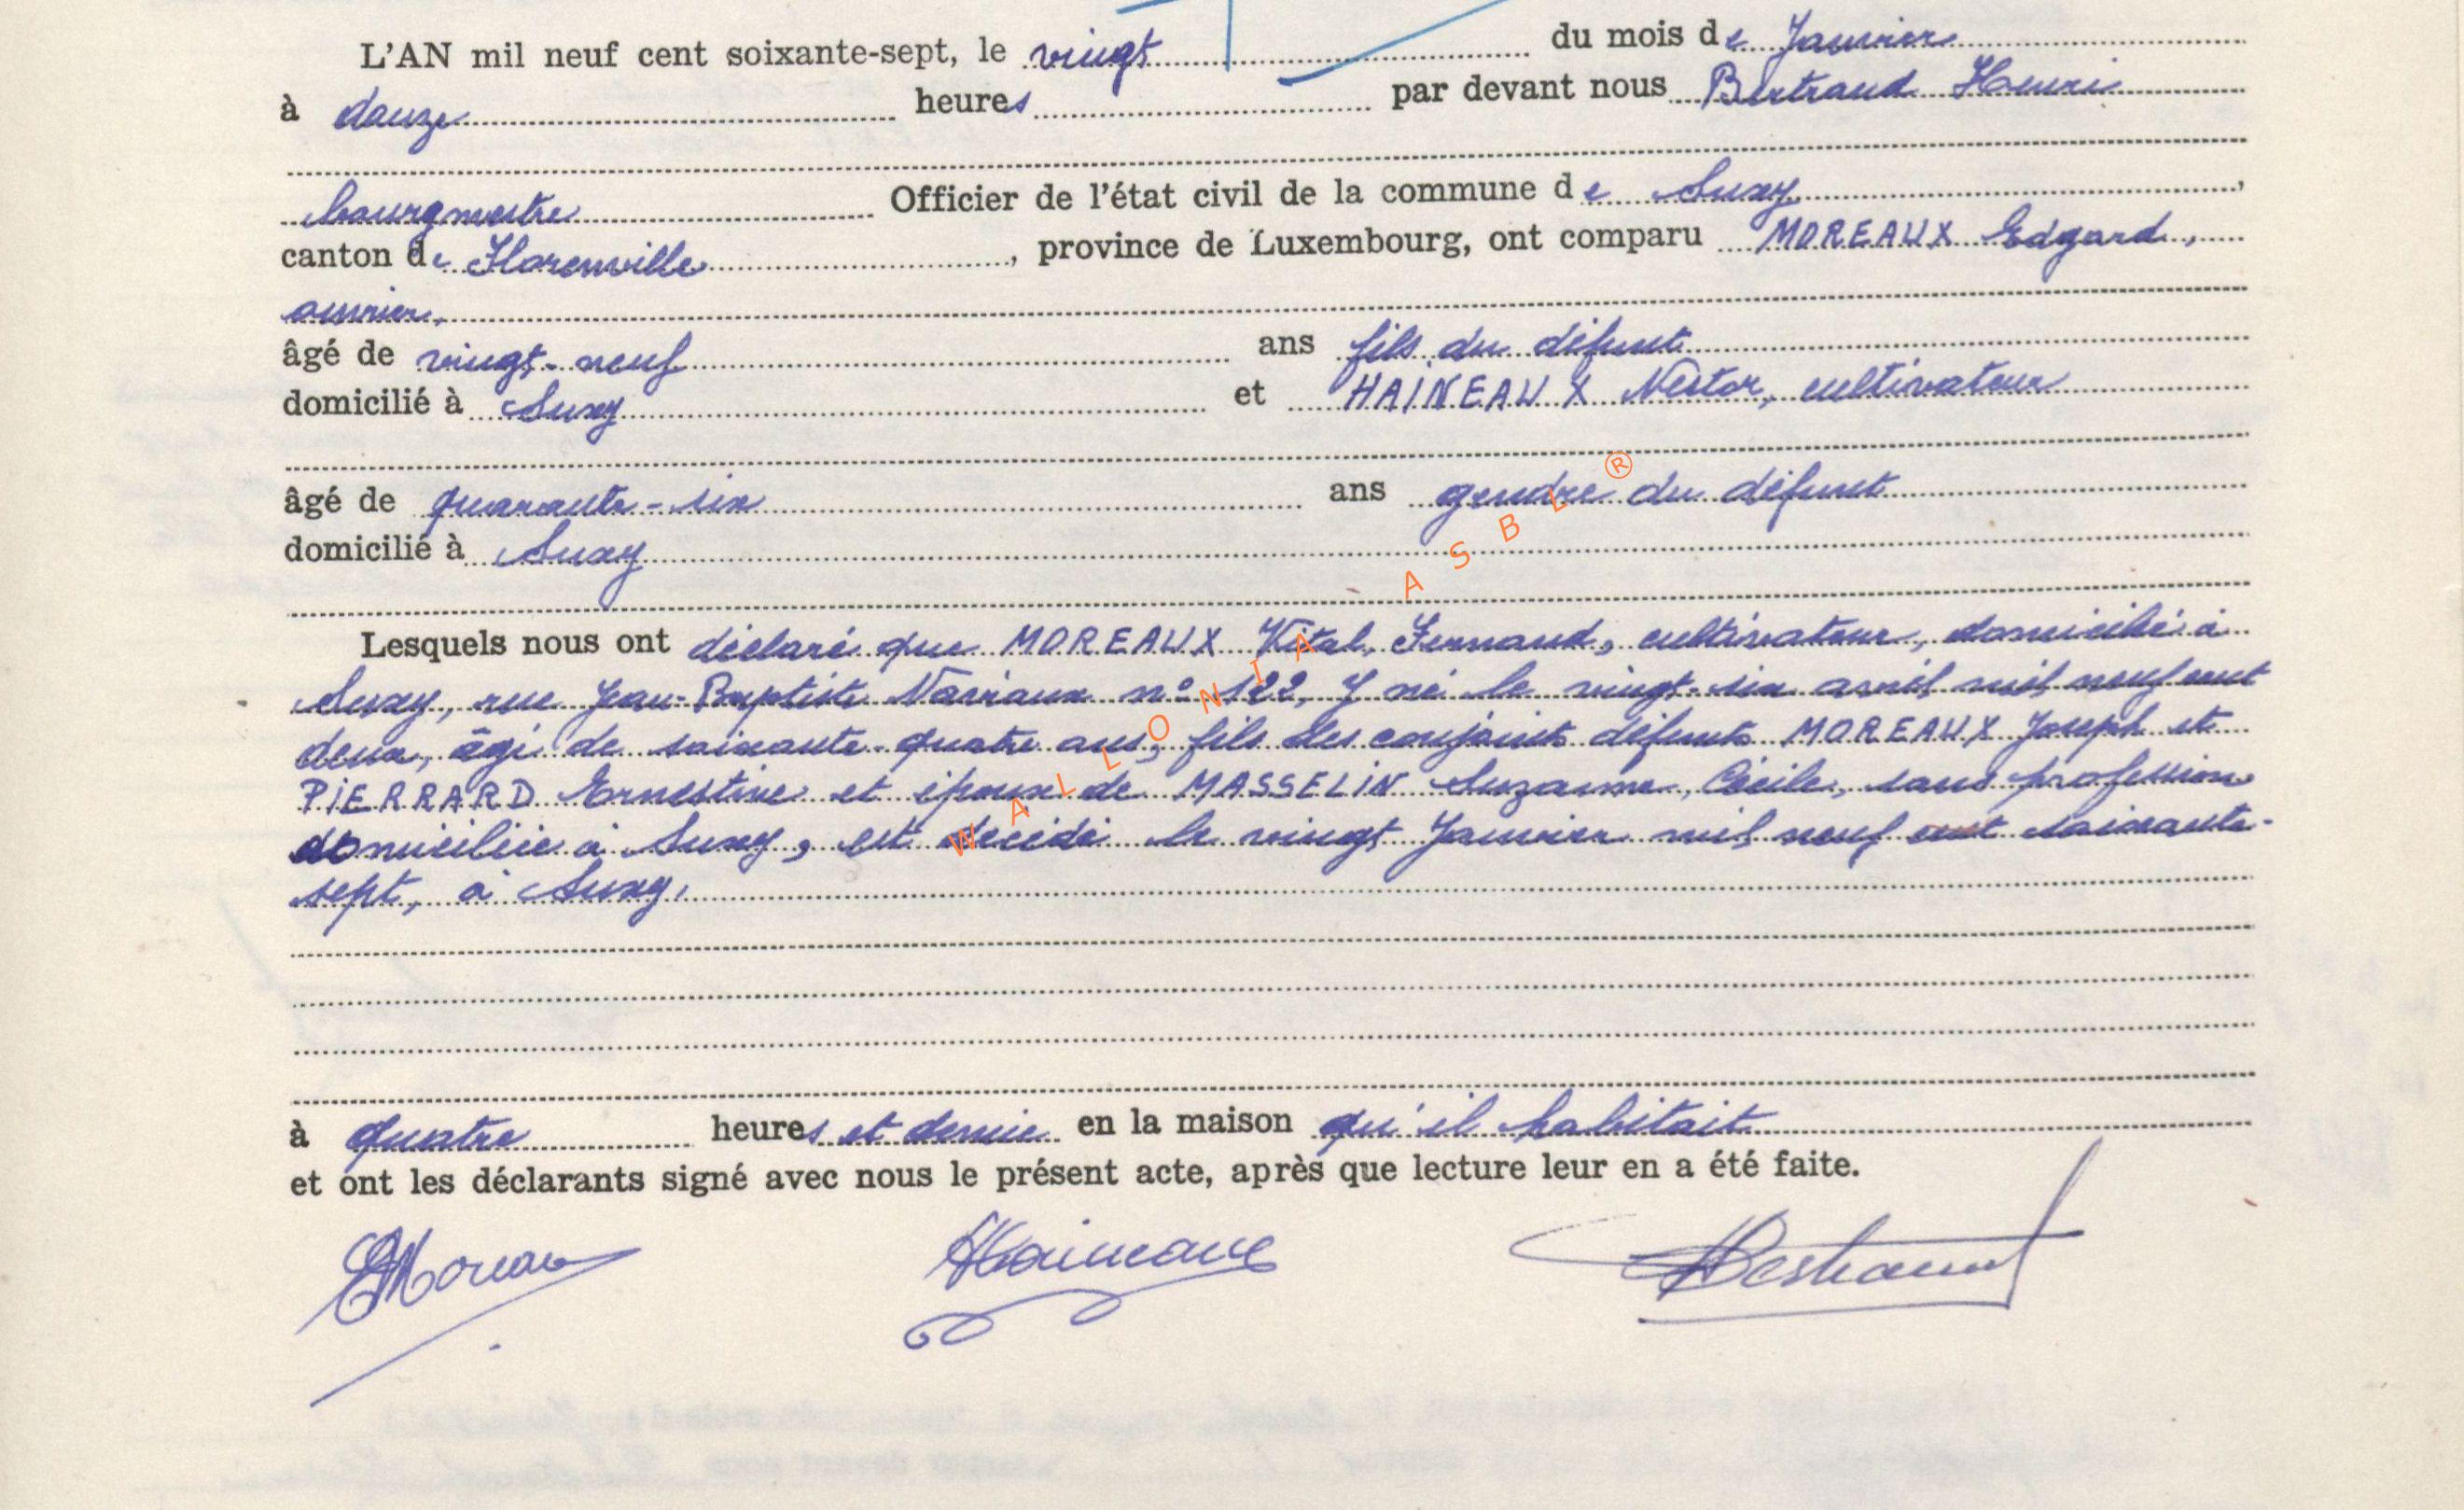 L'AN mil neuf cent soixante-sept, le vingt du mois de Janvier
à douze heures par devant nous Bertrand Henri
bourgmestre Officier de l'état civil de la commune de Suxy,
canton de Florenville, province de Luxembourg, ont comparu MOREAUX Edgard,
ouvrier,
âgé de vingt-neuf ans fils du défunt
domicilié à Suxy et HAINEAUX Nestor, cultivateur
âgé de quarante-six ans gendre du défunt
domicilié à Suxy
Lesquels nous ont déclaré que MOREAUX Vital, Fernand, cultivateur, domicilié à
Suxy, rue Jean-Baptiste n° 122, y né le vingt-six avril mil neuf cent
deux, âgé de soixante-quatre ans, fils des conjoints défunts MOREAUX Joseph et
PIERRARD Ernestine et époux de MASSELIN Suzanne, Cécile, sans profession
domiciliée à Suxy, est décédé le vingt Janvier mil neuf cent soixante-
sept, à Suxy,
à quatre heures et demie en la maison qu'il habitait
et ont les déclarants signé avec nous le présent acte, après que lecture leur en a été faite.
EMoreau Haineaux HBertrand
WALLONIA ASBL ®